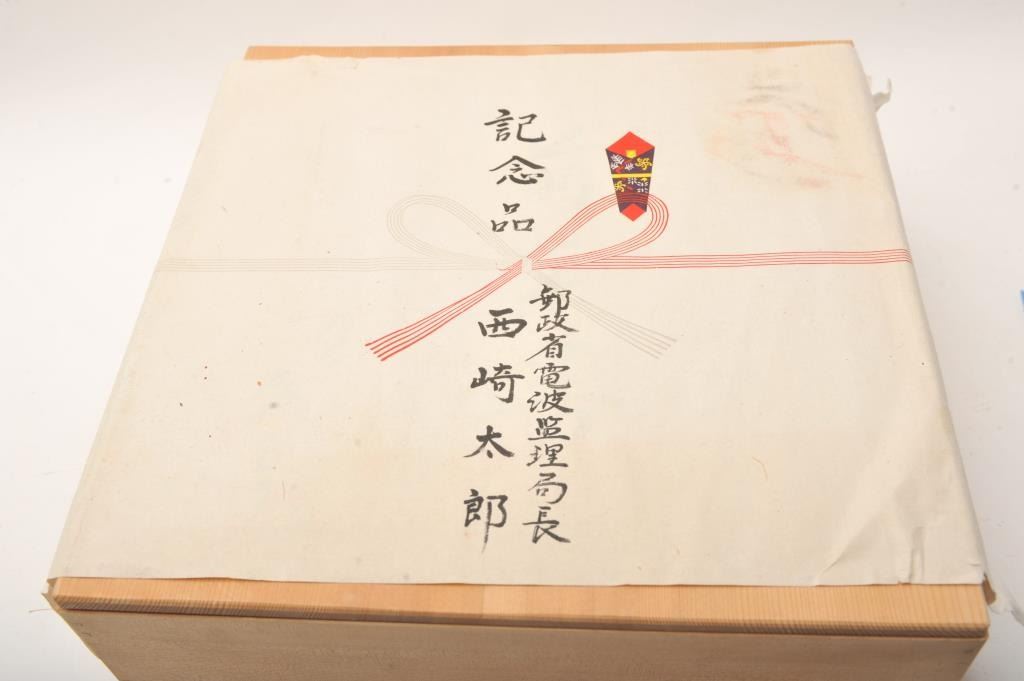 記念品
郵政省電波監理局長
西崎太郎